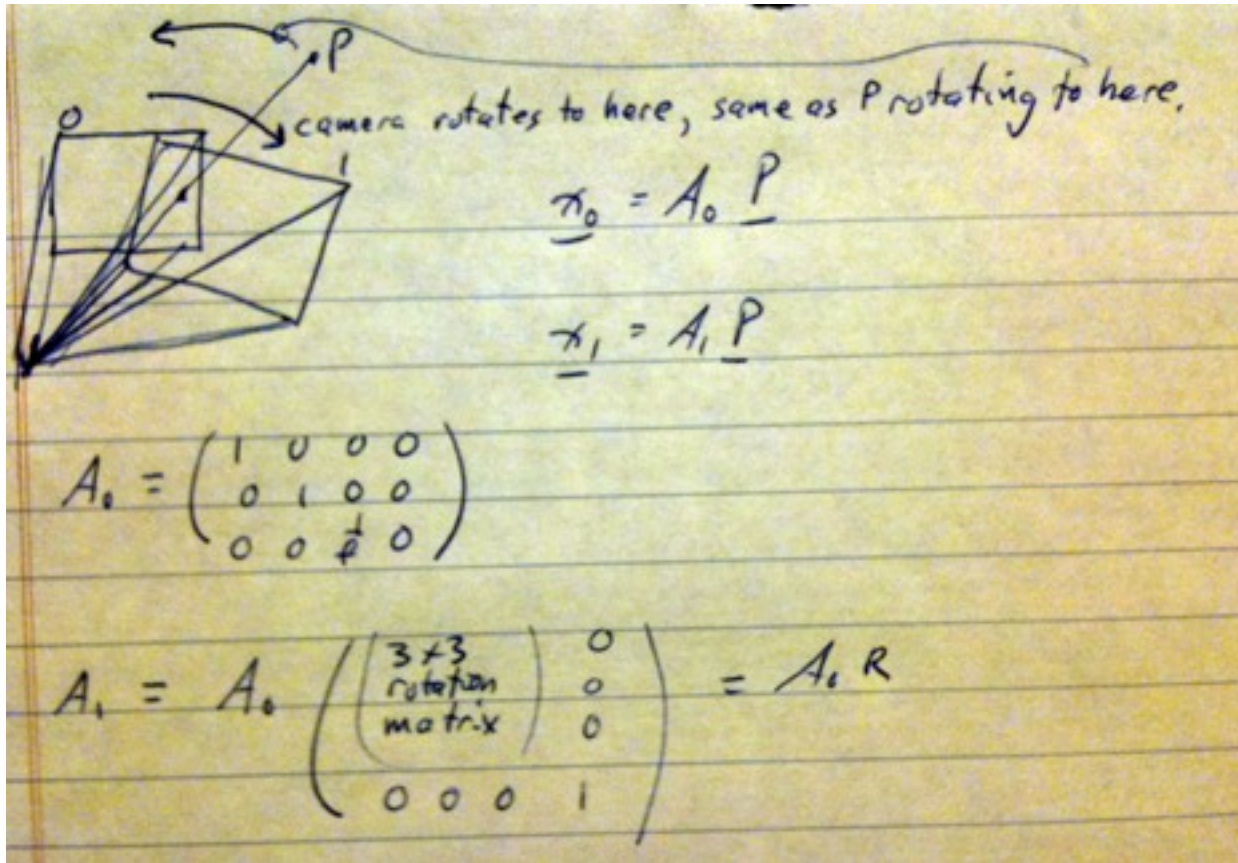 P
0
camera rotates to here, same as P rotating to here.
1
x₀ = A₀ P
x₁ = A₁ P
A₀ = ( 1 0 0 0
0 1 0 0
0 0 1/f 0 )
A₁ = A₀ ( ( 3x3 rotation matrix ) 0
0
0
0 0 0 1 ) = A₀ R